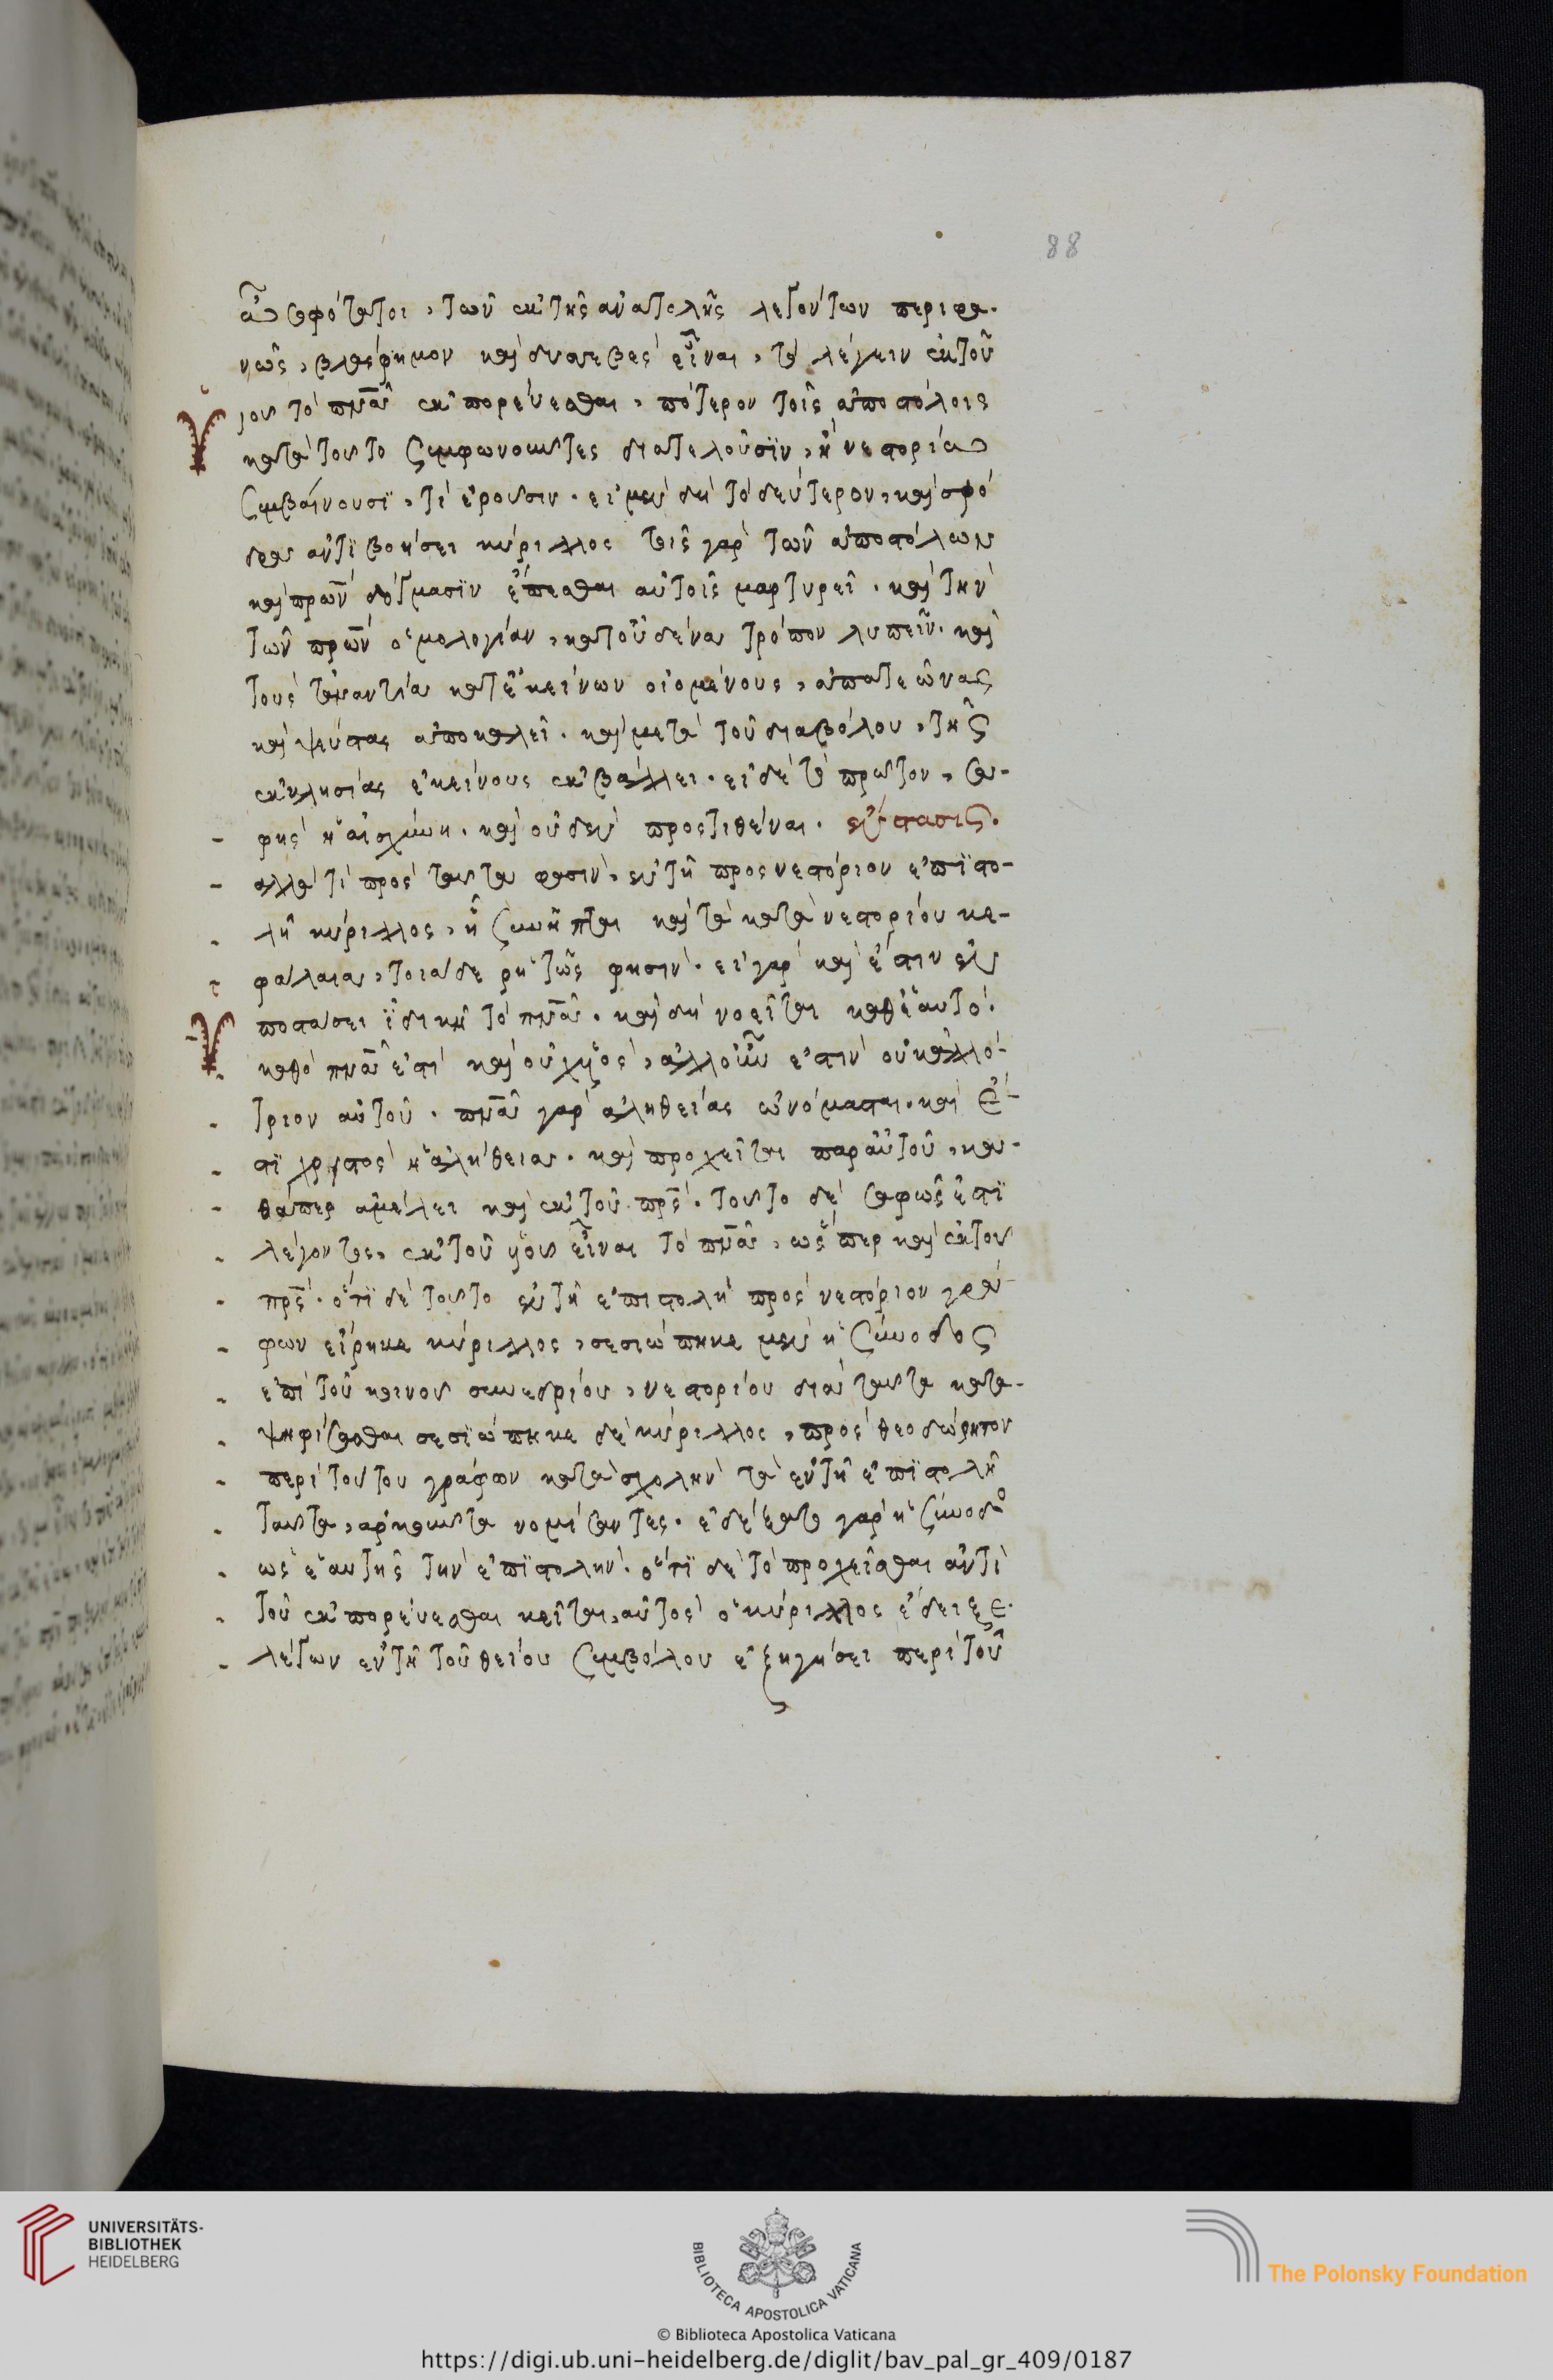 88
ὦ σοφώτατοι, τῶν ἐκ τῆς ἀνατολῆς λεγόντων περιφα-
νῶς, βλάσφημον καὶ δυσσεβὲς εἶναι, τὸ λέγειν ἐκ τοῦ
υἱοῦ τὸ πνᾶ ἐκπορεύεσθαι, πότερον τοῖς ἀποστόλοις
κατὰ τοῦτο συμφωνοῦντες διατελοῦσιν, ἢ νεστορίω
συμβαίνουσι, τί ἐροῦσιν. εἰ μὲν δὴ τὸ δεύτερον, καὶ σφό
δρα ἀντιβοήσει κύριλλος τοῖς γὰρ τῶν ἀποστόλων
καὶ πρων δόγμασιν ἕπεσθαι αὐτοῖς μαρτυρεῖ. καὶ τὴν
τῶν πρων ὁμολογίαν, κατ' οὐδένα τρόπον λυπεῖν. καὶ
τοὺς τἀναντία κατ' ἐκείνων οἰομένους, ἀπατεῶνας
καὶ ψεύστας ἀποκαλεῖ. καὶ μετὰ τοῦ διαβόλου, τῆς
ἐκκλησίας ἐκείνους ἐκβάλλει. εἰ δὲ τὸ πρῶτον, σα-
φὴς ἡ αἰσχύνη. καὶ οὐδὲν προστιθέναι. ἔνστασις.
ἀλλὰ τί πρὸς ταῦτα φασίν, ἐν τῇ πρὸς νεστόριον ἐπιστο-
λῇ κύριλλος, ᾗ συνῆπται καὶ τὰ κατὰ νεστορίου κε-
φάλαια, τοιάδε ῥητῶς φησίν. εἰ γὰρ καὶ ἔστιν ἐν
ὑποστάσει ἰδικῇ τὸ πνᾶ. καὶ δὴ νοεῖται καθ' ἑαυτό.
καθὸ πνᾶ ἐστὶ καὶ οὐχ υἱὸς, ἀλλ' οὖν ἐστὶν οὐκ ἀλλό-
τριον αὐτοῦ. πνᾶ γὰρ ἀληθείας ὠνόμασται. καὶ ἔ-
στι χριστὸς ἡ ἀλήθεια. καὶ προχεῖται παρ' αὐτοῦ, κα-
θάπερ ἀμέλει καὶ ἐκ τοῦ πρς. τοῦτο δὲ σαφῶς ἐστὶ
λέγοντος, ἐκ τοῦ υἱοῦ εἶναι τὸ πνᾶ, ὥσπερ καὶ ἐκ τοῦ
πρς. ὅτι δὲ τοῦτο ἐν τῇ ἐπιστολῇ πρὸς νεστόριον γρά-
φων εἴρηκε κύριλλος, σεσιώπηκε μὲν ἡ σύνοδος
ἐπὶ τοῦ κοινοῦ συνεδρίου, νεστορίου διὰ ταῦτα κατα-
ψηφίσασθαι σεσιώπηκε δὲ κύριλλος, πρὸς θεοδώρητον
περὶ τούτου γράφων κατὰ σχολὴν τὰ ἐν τῇ ἐπιστολῇ
ταῦτα, ἀρκοῦντα νομίσαντες. ἐδέξατο γὰρ ἡ σύνοδο
ὡς ἑαυτῆς τὴν ἐπιστολήν. ὅτι δὲ τὸ προχεῖσθαι ἀντὶ
τοῦ ἐκπορεύεσθαι κεῖται, αὐτὸς ὁ κύριλλος ἔδειξε.
λέγων ἐν τῇ τοῦ θείου συμβόλου ἐξηγήσει περὶ τοῦ
UNIVERSITÄTS-
BIBLIOTHEK
HEIDELBERG
BIBLIOTECA APOSTOLICA VATICANA
The Polonsky Foundation
© Biblioteca Apostolica Vaticana
https://digi.ub.uni-heidelberg.de/diglit/bav_pal_gr_409/0187